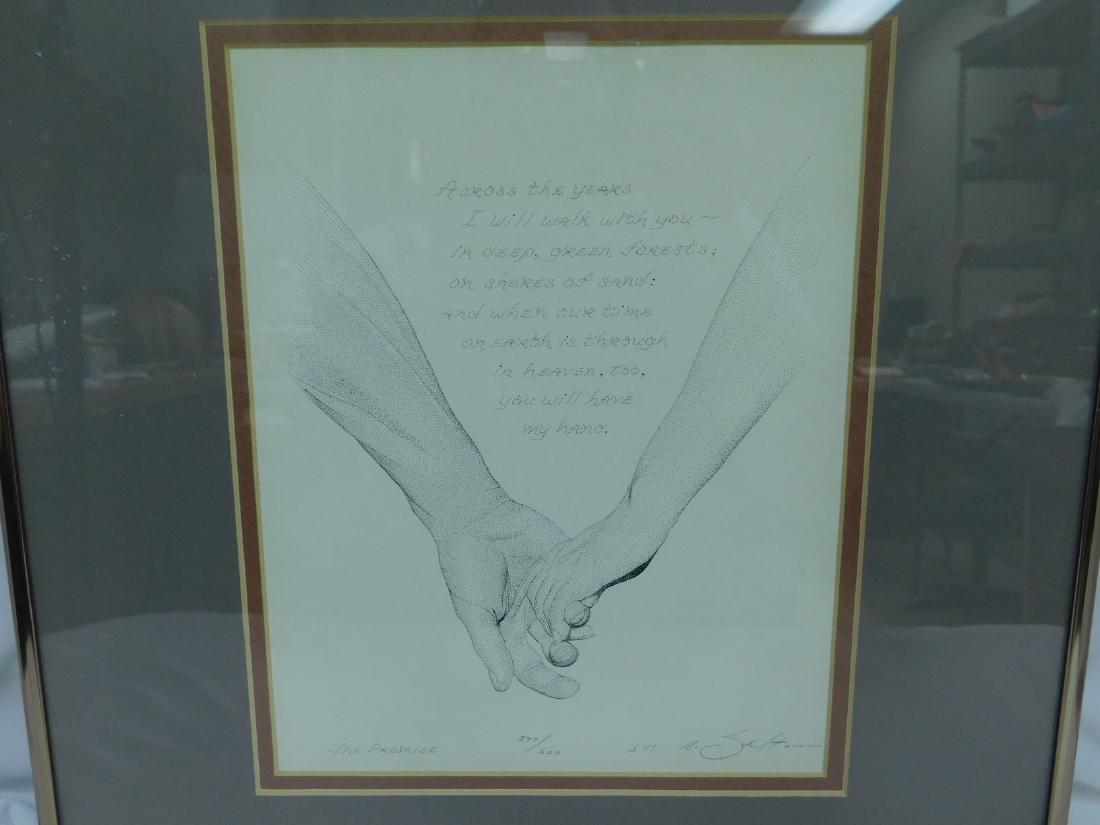 Across the years
I will walk with you ~
in deep, green forests;
on shores of sand:
and when our time
on earth is through
in heaven, too,
you will have
my hand.
The Promise 577/600